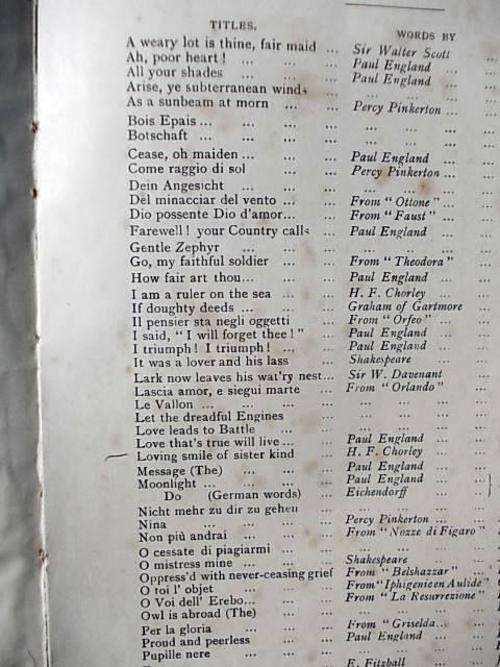 TITLES. WORDS BY
A weary lot is thine, fair maid ... Sir Walter Scott
Ah, poor heart! ... ... ... Paul England ...
All your shades ... ... ... Paul England ...
Arise, ye subterranean winds ... ...
As a sunbeam at morn ... ... Percy Pinkerton ...
Bois Epais ... ... ... ... ... ... ...
Botschaft ... ... ... ... ... ... ...
Cease, oh maiden ... ... ... Paul England ...
Come raggio di sol ... ... Percy Pinkerton ...
Dein Angesicht ... ... ... ... ... ...
Del minacciar del vento ... ... From "Ottone" ...
Dio possente Dio d'amor... ... From "Faust" ...
Farewell! your Country calls ... Paul England ...
Gentle Zephyr ... ... ... ... ... ...
Go, my faithful soldier ... ... From "Theodora"
How fair art thou... ... ... Paul England ...
I am a ruler on the sea ... ... H. F. Chorley ...
If doughty deeds ... ... ... Graham of Gartmore
Il pensier sta negli oggetti ... From "Orfeo" ...
I said, "I will forget thee!" ... Paul England ...
I triumph! I triumph! ... ... Paul England ...
It was a lover and his lass ... Shakespeare ...
Lark now leaves his wat'ry nest... Sir W. Davenant ...
Lascia amor, e siegui marte ... From "Orlando" ...
Le Vallon ... ... ... ... ... ... ...
Let the dreadful Engines ... ... ... ...
Love leads to Battle ... ... ... ... ...
Love that's true will live ... ... Paul England ...
Loving smile of sister kind ... H. F. Chorley ...
Message (The) ... ... ... Paul England ...
Moonlight ... ... ... ... Paul England ...
Do (German words) ... Eichendorff ...
Nicht mehr zu dir zu gehen ... ... ...
Nina ... ... ... ... Percy Pinkerton ...
Non più andrai ... ... ... From "Nozze di Figaro"
O cessate di piagiarmi ... ... ... ...
O mistress mine ... ... ... Shakespeare ...
Oppress'd with never-ceasing grief From "Belshazzar" ...
O toi l' objet ... ... ... From "Iphigenie en Aulide"
O Voi dell' Erebo... ... ... From "La Resurrezione"
Owl is abroad (The) ... ... ... ...
Per la gloria ... ... ... From "Griselda... ...
Proud and peerless ... ... Paul England ...
Pupille nere ... ... ... ... ...
E. Fitzball ...